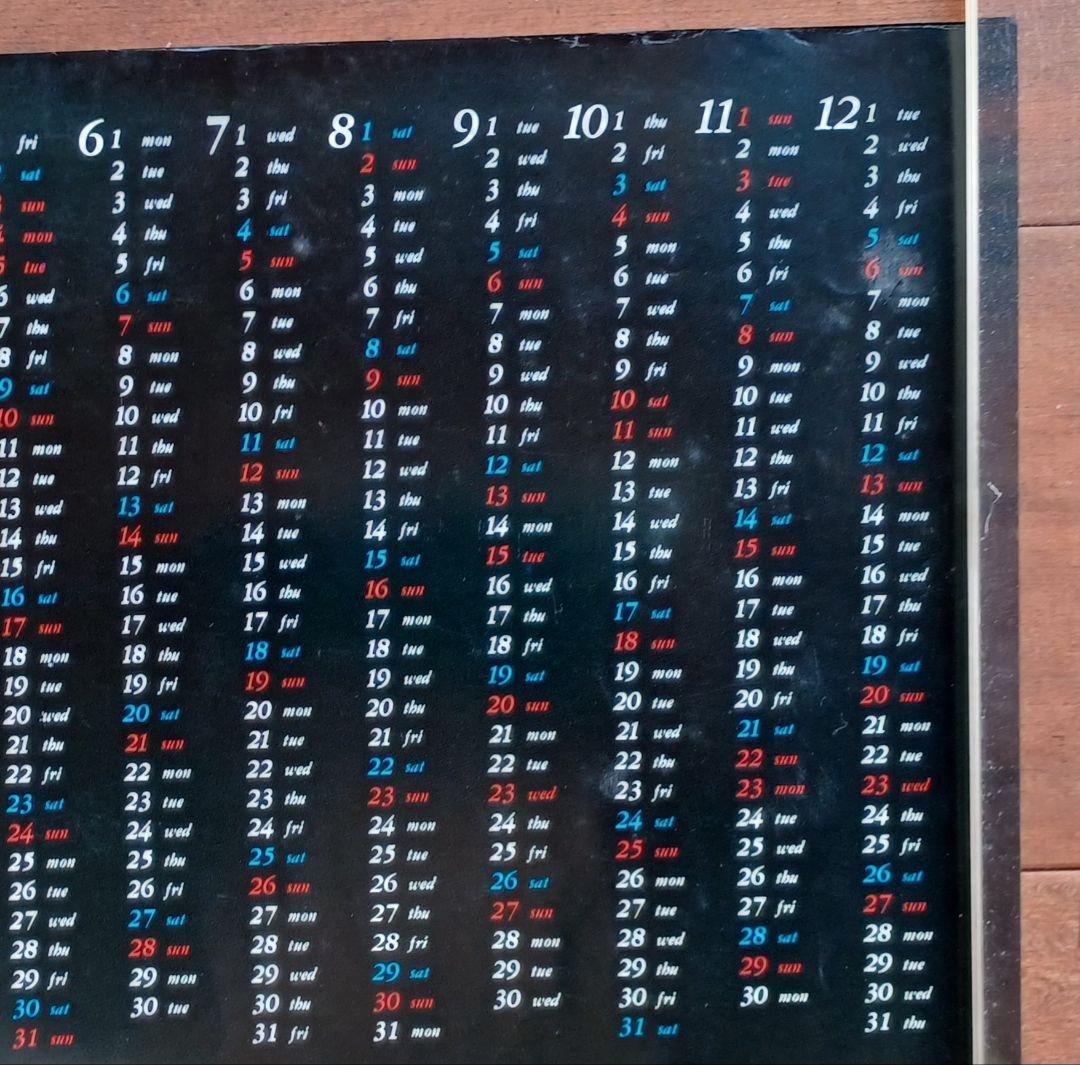 fri
sat
sun
mon
tue
wed
7 thu
8 fri
9 sat
10 sun
11 mon
12 tue
13 wed
14 thu
15 fri
16 sat
17 sun
18 mon
19 tue
20 wed
21 thu
22 fri
23 sat
24 sun
25 mon
26 tue
27 wed
28 thu
29 fri
30 sat
31 sun
6
1 mon
2 tue
3 wed
4 thu
5 fri
6 sat
7 sun
8 mon
9 tue
10 wed
11 thu
12 fri
13 sat
14 sun
15 mon
16 tue
17 wed
18 thu
19 fri
20 sat
21 sun
22 mon
23 tue
24 wed
25 thu
26 fri
27 sat
28 sun
29 mon
30 tue
7
1 wed
2 thu
3 fri
4 sat
5 sun
6 mon
7 tue
8 wed
9 thu
10 fri
11 sat
12 sun
13 mon
14 tue
15 wed
16 thu
17 fri
18 sat
19 sun
20 mon
21 tue
22 wed
23 thu
24 fri
25 sat
26 sun
27 mon
28 tue
29 wed
30 thu
31 fri
8
1 sat
2 sun
3 mon
4 tue
5 wed
6 thu
7 fri
8 sat
9 sun
10 mon
11 tue
12 wed
13 thu
14 fri
15 sat
16 sun
17 mon
18 tue
19 wed
20 thu
21 fri
22 sat
23 sun
24 mon
25 tue
26 wed
27 thu
28 fri
29 sat
30 sun
31 mon
9
1 tue
2 wed
3 thu
4 fri
5 sat
6 sun
7 mon
8 tue
9 wed
10 thu
11 fri
12 sat
13 sun
14 mon
15 tue
16 wed
17 thu
18 fri
19 sat
20 sun
21 mon
22 tue
23 wed
24 thu
25 fri
26 sat
27 sun
28 mon
29 tue
30 wed
10
1 thu
2 fri
3 sat
4 sun
5 mon
6 tue
7 wed
8 thu
9 fri
10 sat
11 sun
12 mon
13 tue
14 wed
15 thu
16 fri
17 sat
18 sun
19 mon
20 tue
21 wed
22 thu
23 fri
24 sat
25 sun
26 mon
27 tue
28 wed
29 thu
30 fri
31 sat
11
1 sun
2 mon
3 tue
4 wed
5 thu
6 fri
7 sat
8 sun
9 mon
10 tue
11 wed
12 thu
13 fri
14 sat
15 sun
16 mon
17 tue
18 wed
19 thu
20 fri
21 sat
22 sun
23 mon
24 tue
25 wed
26 thu
27 fri
28 sat
29 sun
30 mon
12
1 tue
2 wed
3 thu
4 fri
5 sat
6 sun
7 mon
8 tue
9 wed
10 thu
11 fri
12 sat
13 sun
14 mon
15 tue
16 wed
17 thu
18 fri
19 sat
20 sun
21 mon
22 tue
23 wed
24 thu
25 fri
26 sat
27 sun
28 mon
29 tue
30 wed
31 thu